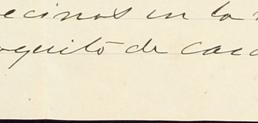 ecinos en la
oquito de caca